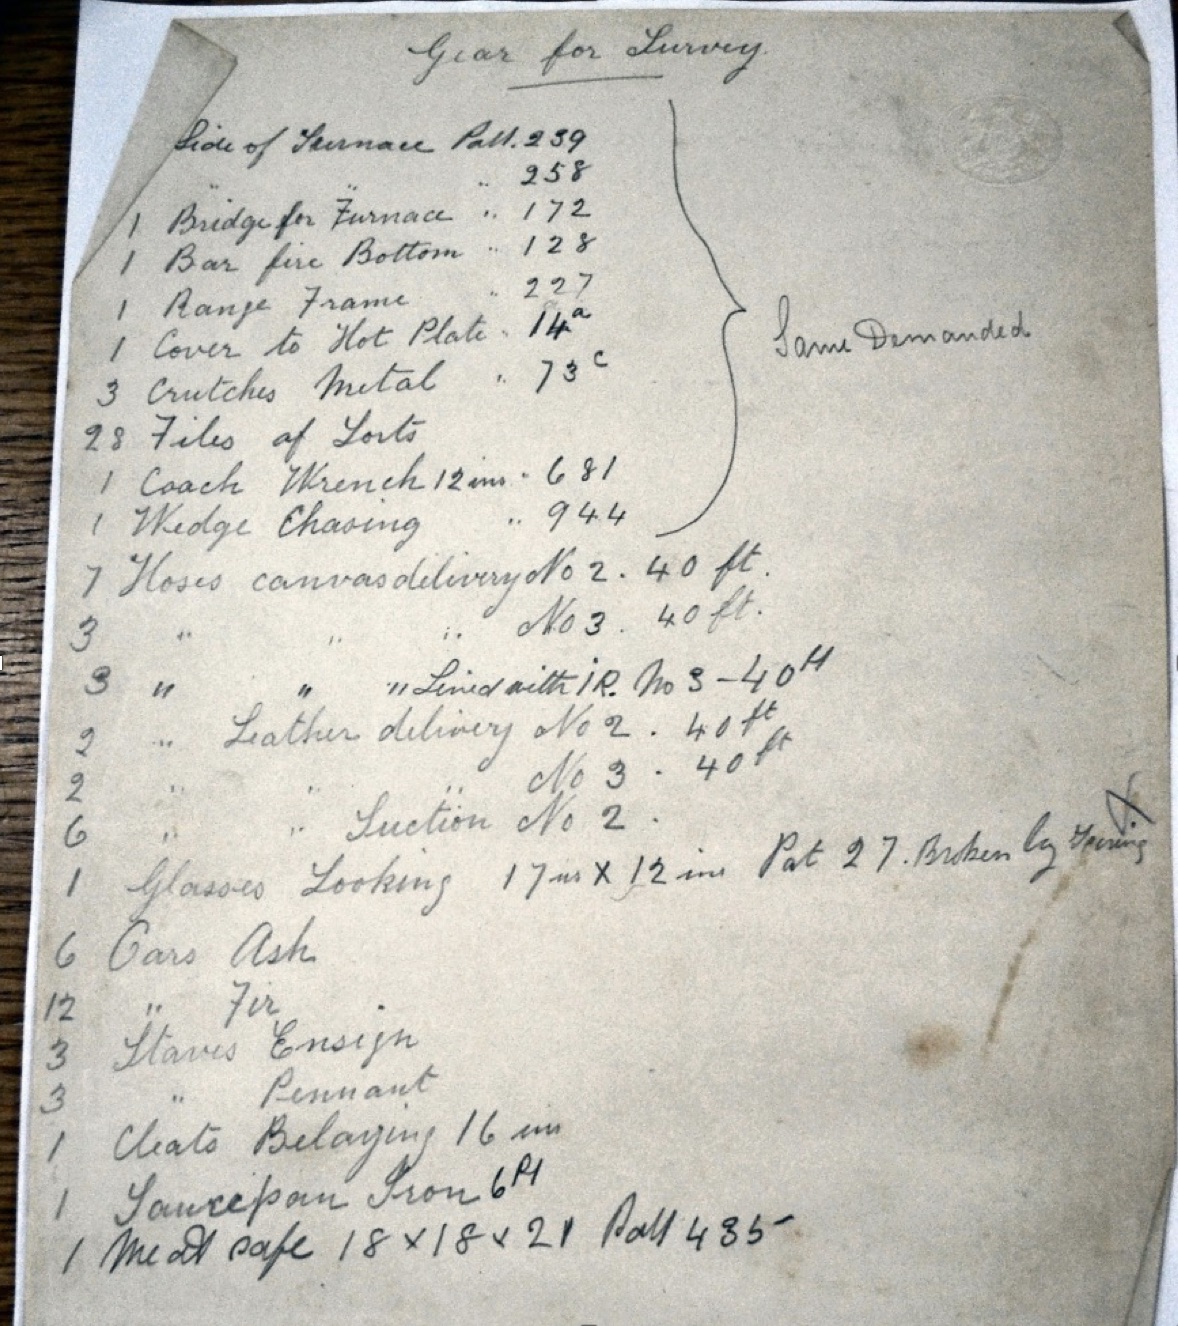 Gear for Survey
Side of Furnace Patt. 239
" " " 258
1 Bridge for Furnace " 172
1 Bar fire Bottom " 128
1 Range Frame " 227
1 Cover to Hot Plate " 14a
3 Crutches Metal " 73c
Same Demanded
28 Files of Sorts
1 Coach Wrench 12 ins " 681
1 Wedge Chasing " 944
7 Hoses canvas delivery No 2. 40 ft.
3 " " " No 3. 40 ft.
3 " " " Lined with I.R. No 3 - 40 ft
2 " Leather delivery No 2. 40 ft
2 " " " No 3. 40 ft
6 " " Suction No 2.
1 Glasses Looking 17 ins X 12 ins Pat 27. Broken by Firing
6 Oars Ash
12 " Fir
3 Staves Ensign
3 " Pennant
1 Cleats Belaying 16 ins
1 Saucepan Iron 6 Pt
1 Meat safe 18 x 18 x 21 Patt 435